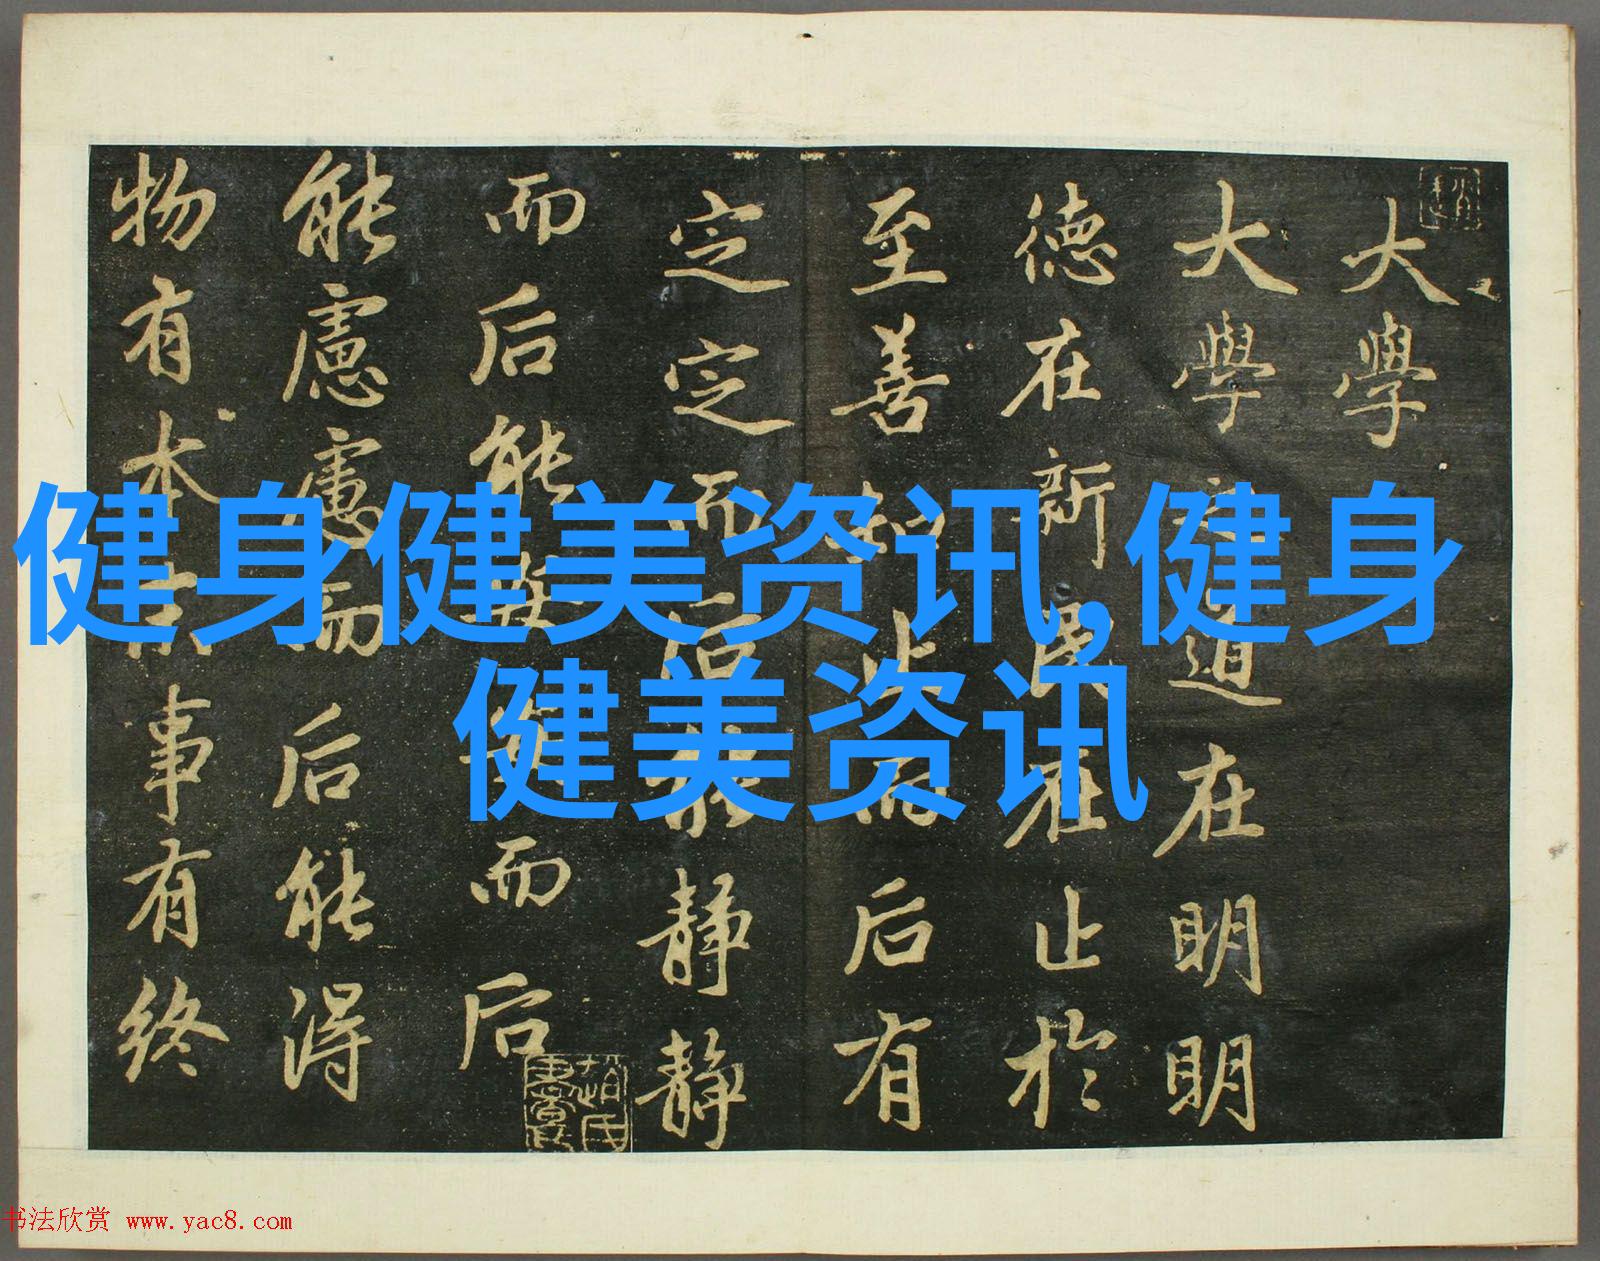 大學
大學之道在明明
德在新民在止於
至善知止而后有
定定而后能靜靜
而后能安安而后
能慮慮而后能得
物有本末事有終
健身健美资讯,健身
健美资讯
书法欣赏 www.yac8.com